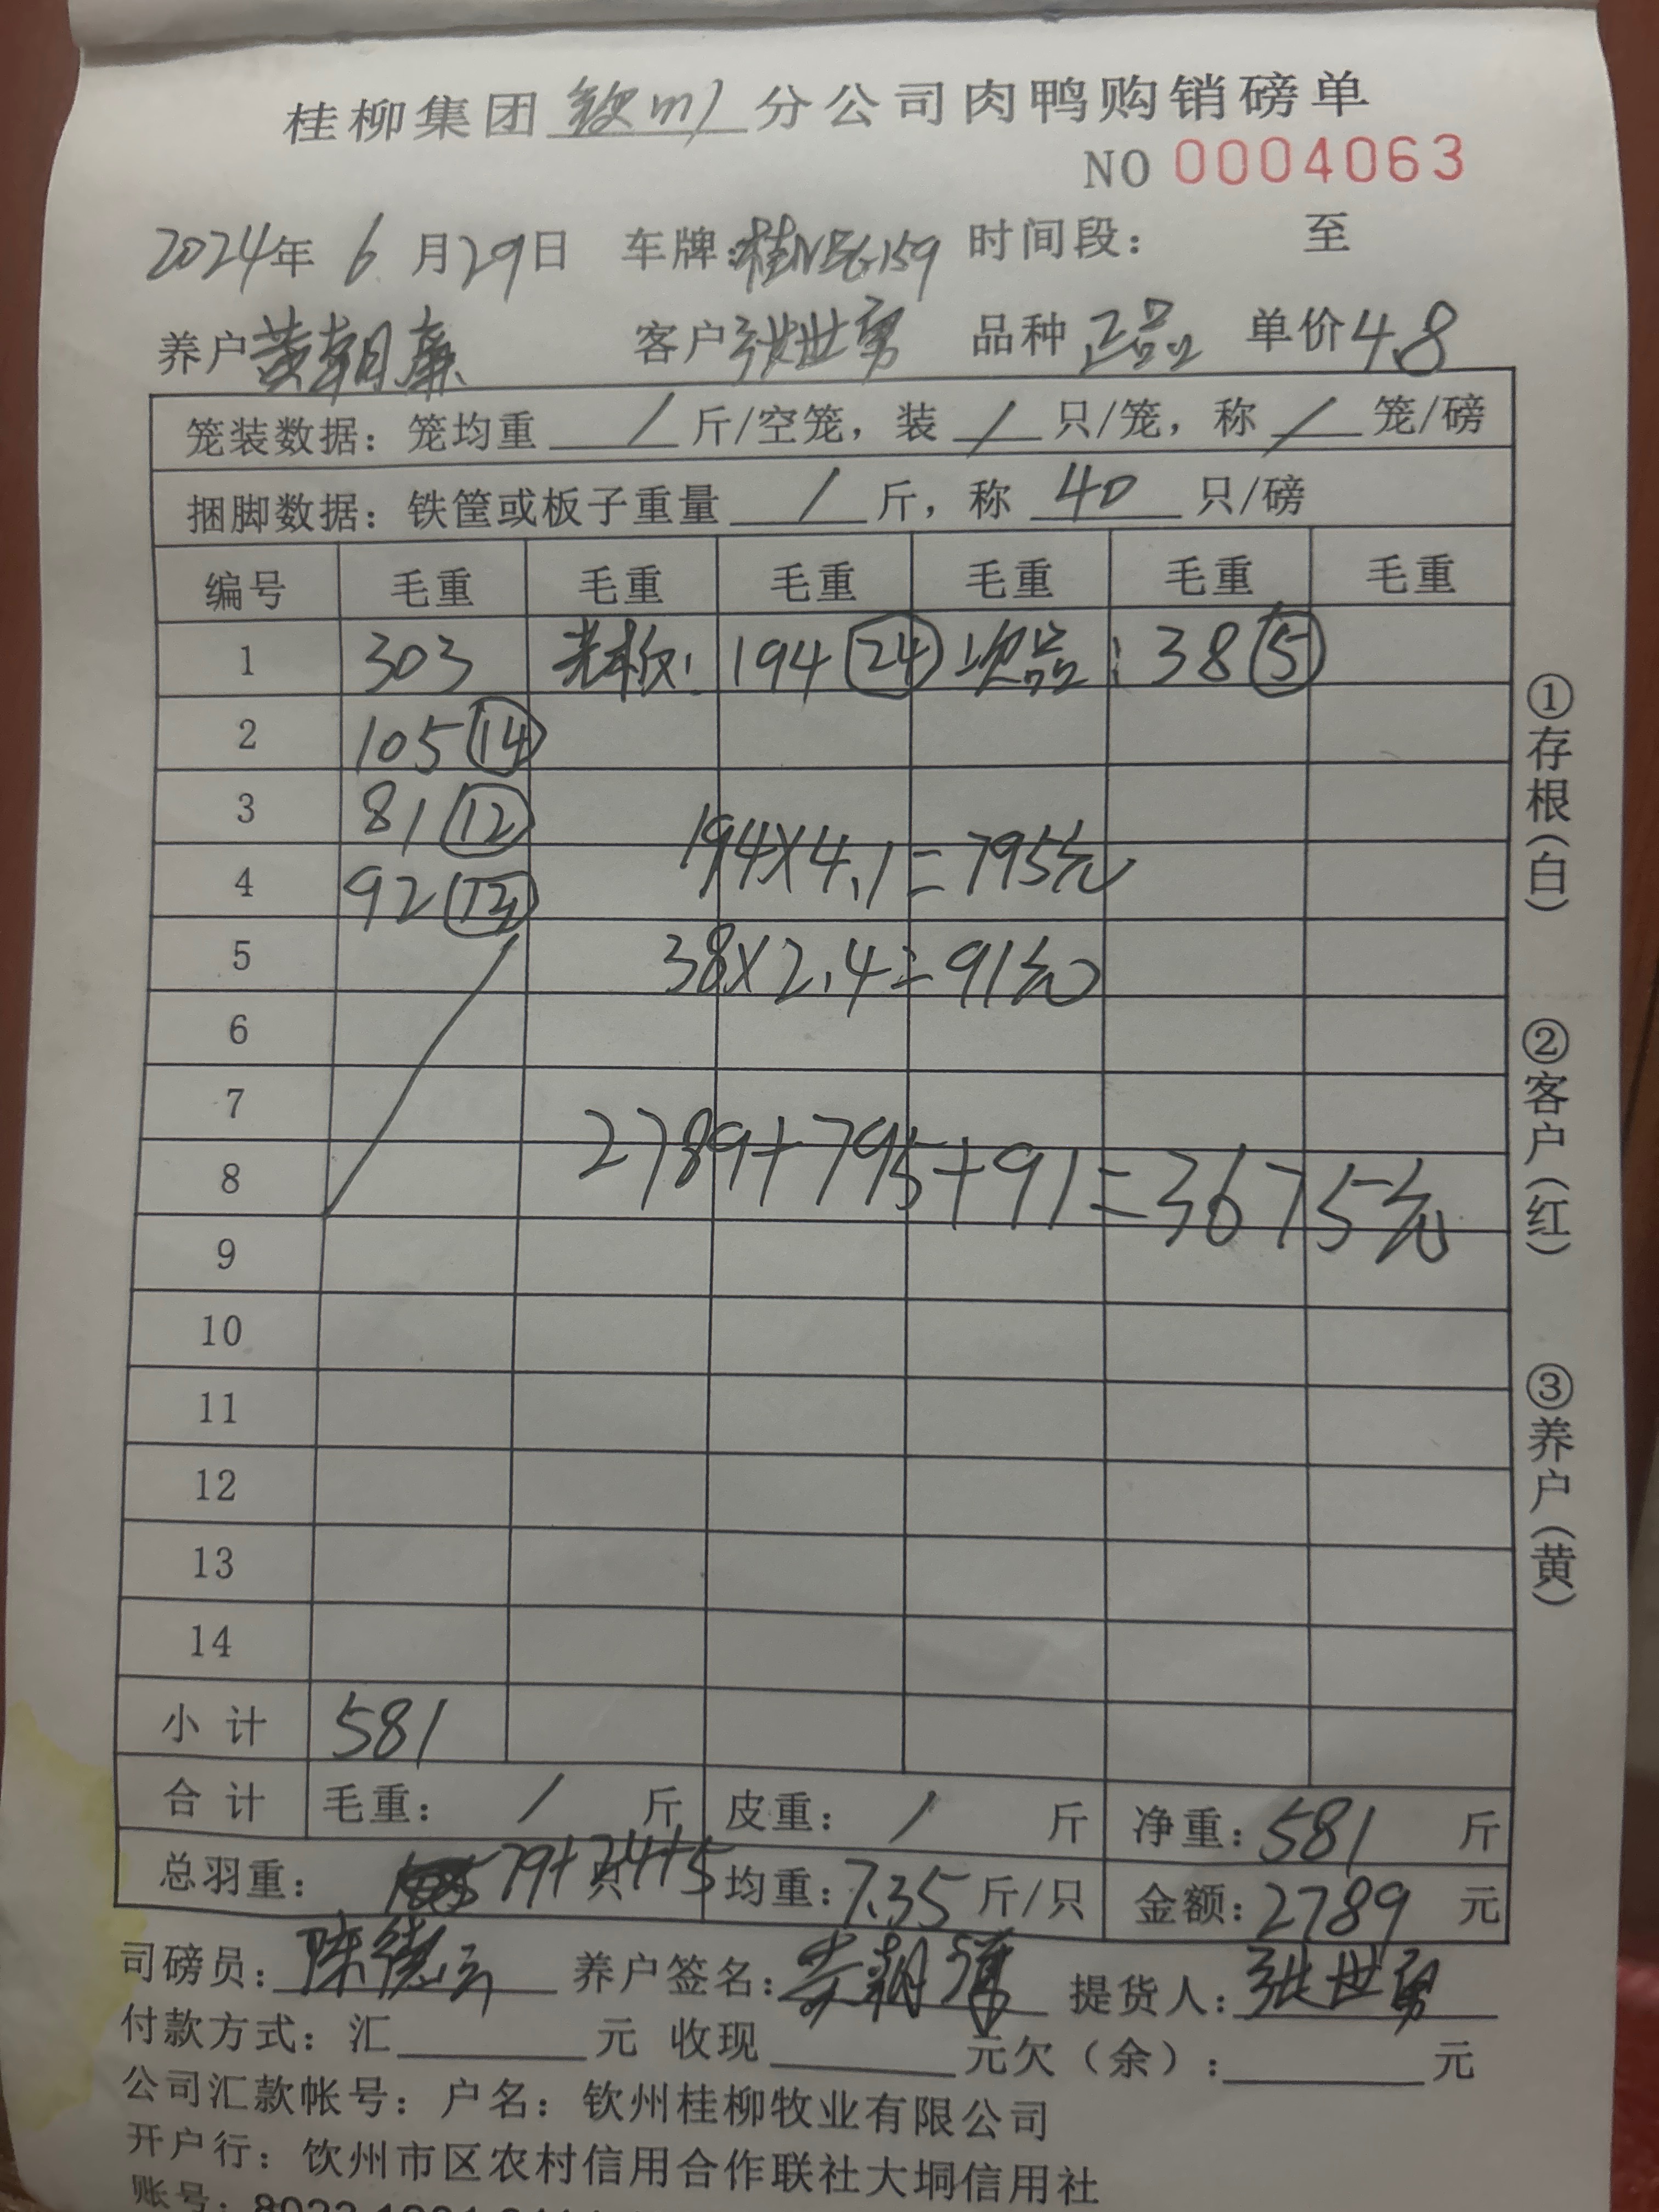 桂柳集团 钦州 分公司肉鸭购销磅单
NO 0004063
2024年 6 月29日 车牌: 时间段: 至
养户 黄朝廉 客户 张世勇 品种 正品 单价 4.8
笼装数据:笼均重 / 斤/空笼,装 / 只/笼,称 / 笼/磅
捆脚数据:铁筐或板子重量 / 斤,称 40 只/磅
编号 毛重 毛重 毛重 毛重 毛重 毛重
1 303 老板: 194 (24) 次品: 38 (5)
2 105 (14)
3 81 (12)
4 92 (13) 194×4.1=795元
5 38×2.4=91元
6
7
8 2789+795+91=3675元
9
10
11
12
13
14
小计 581
合计 毛重: / 斤 皮重: / 斤 净重: 581 斤
总羽重: 79+24+5 只 均重: 7.35 斤/只 金额: 2789 元
司磅员: 陈德 养户签名: 黄朝廉 提货人: 张世勇
付款方式:汇 元 收现 元欠(余): 元
公司汇款帐号:户名:钦州桂柳牧业有限公司
开户行:饮州市区农村信用合作联社大垌信用社
账号:
①存根(白)
②客户(红)
③养户(黄)